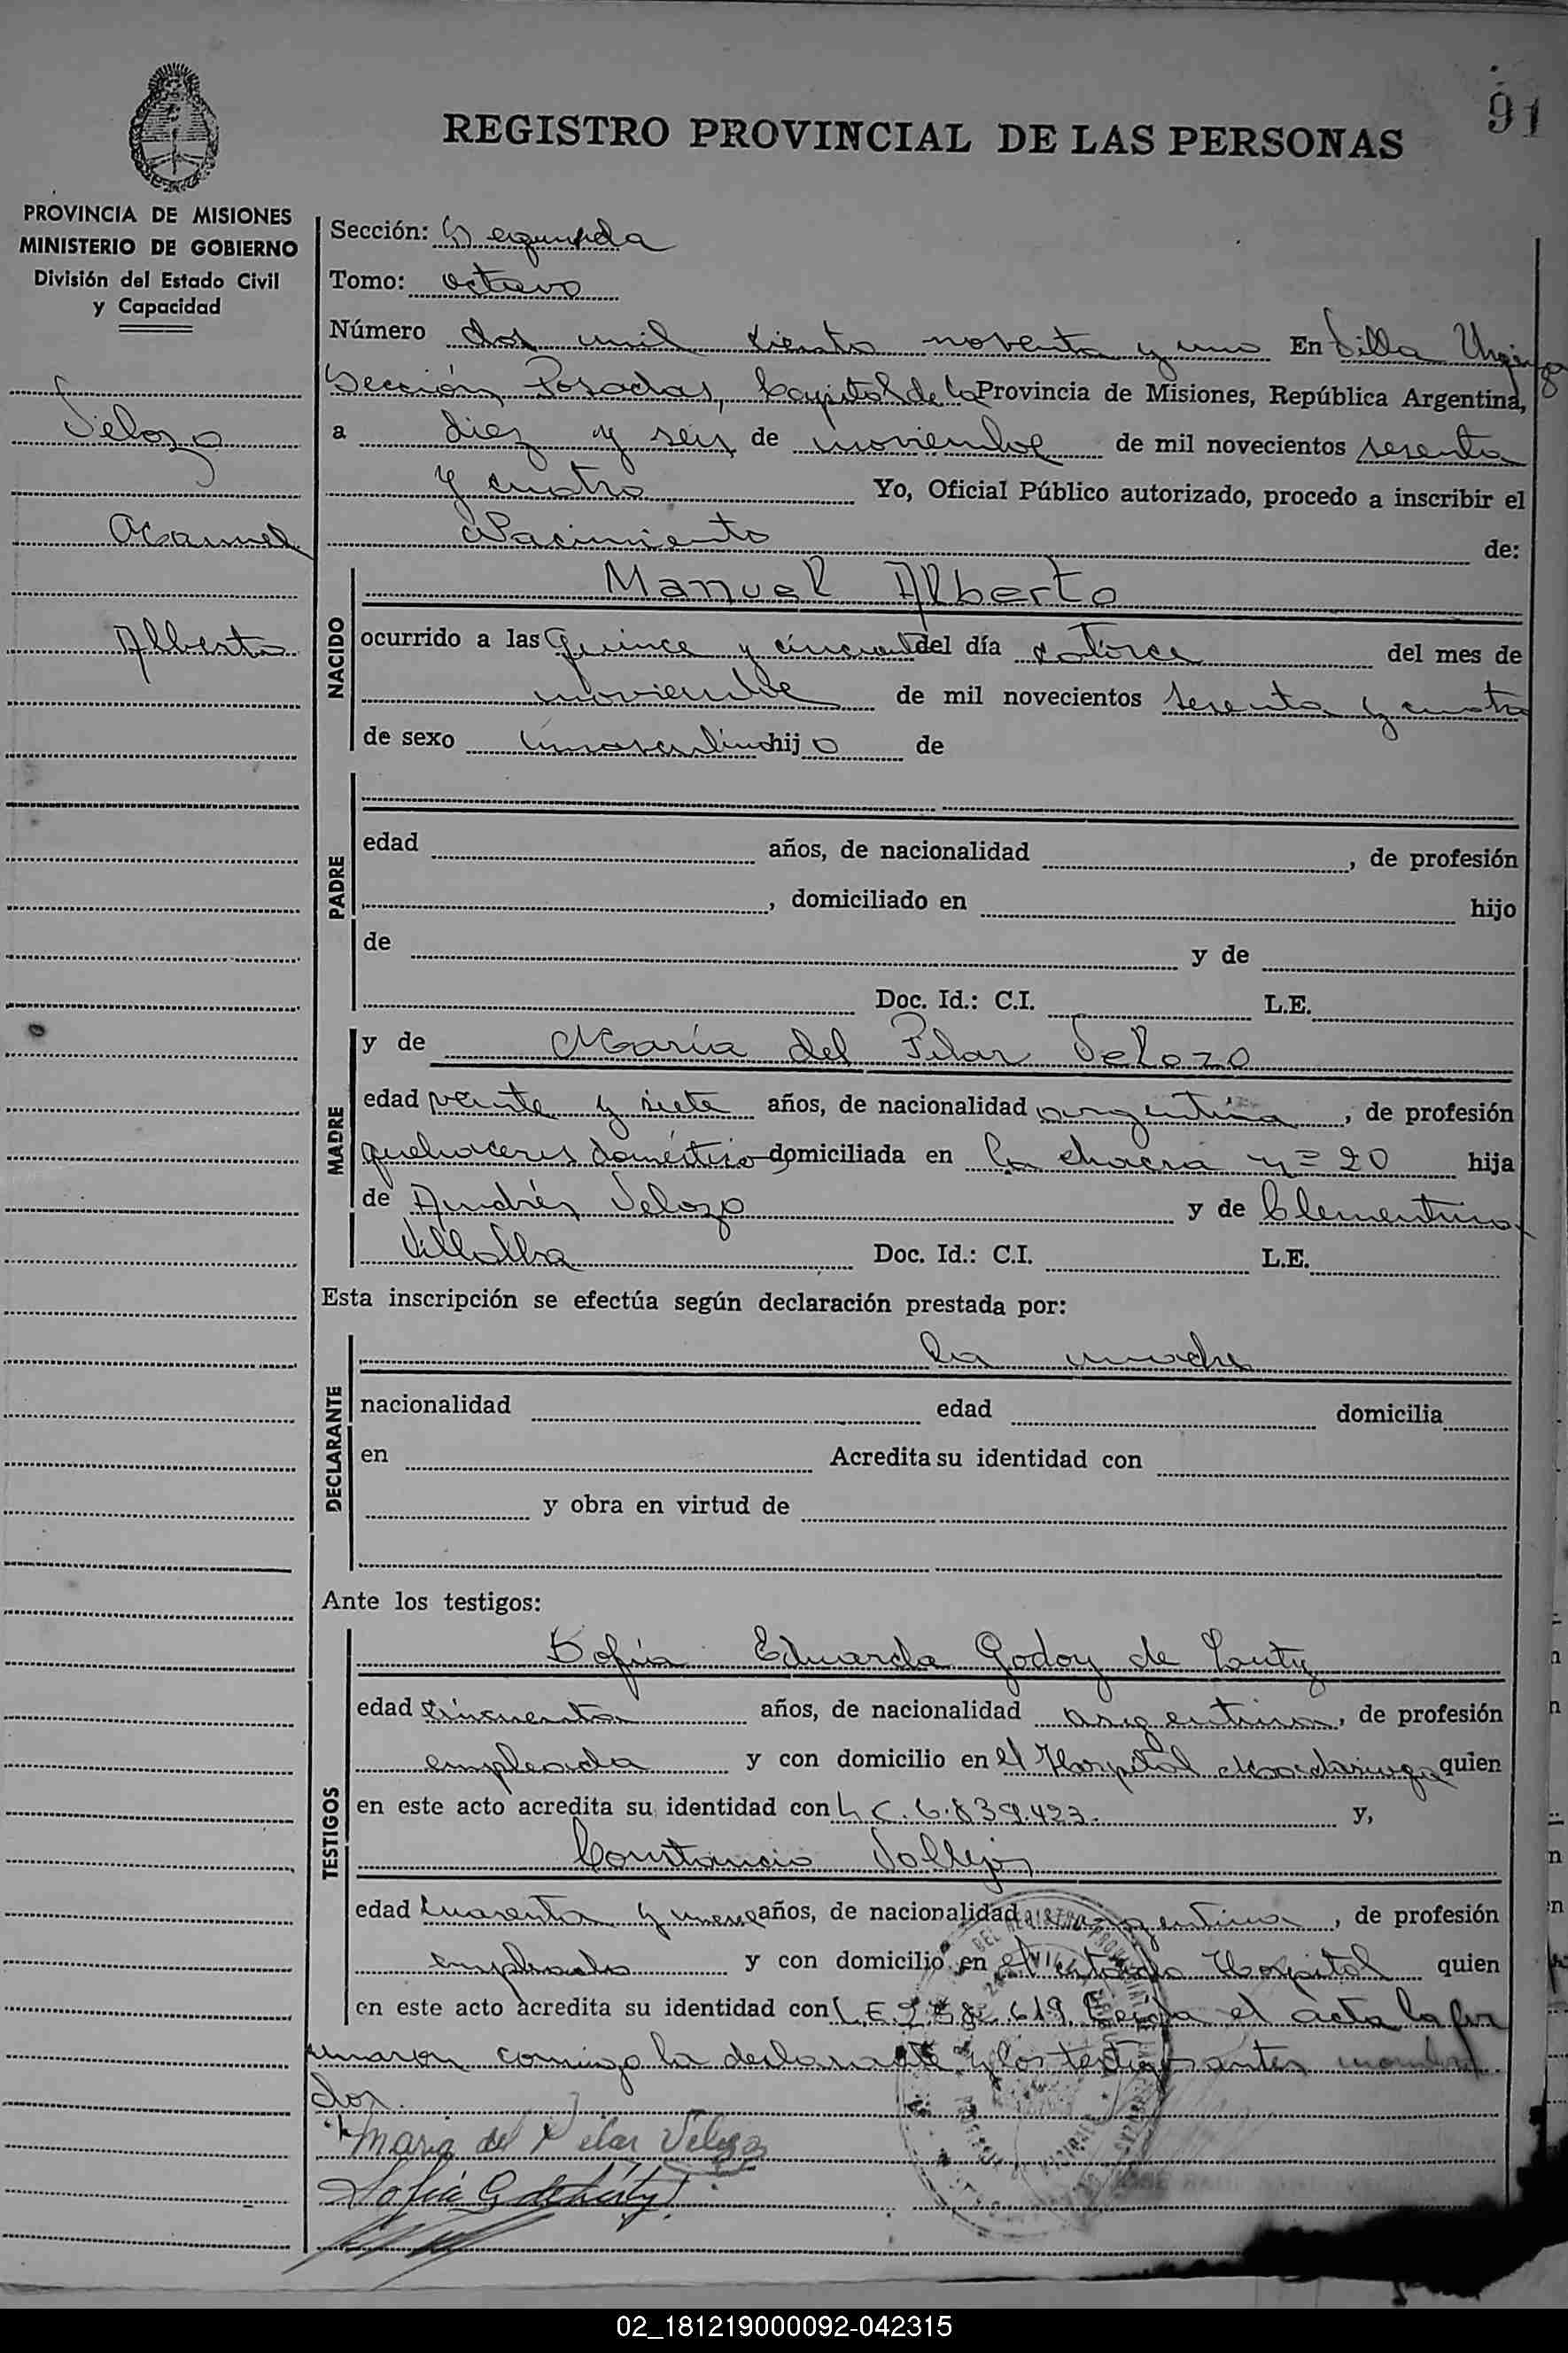 91
REGISTRO PROVINCIAL DE LAS PERSONAS
PROVINCIA DE MISIONES
MINISTERIO DE GOBIERNO
División del Estado Civil
y Capacidad
Velozo
Manuel
Alberto
Sección: Segunda
Tomo: octavo
Número dos mil ciento noventa y uno En Villa Urquiza
Sección Posadas, Capital de la Provincia de Misiones, República Argentina,
a diez y seis de noviembre de mil novecientos sesenta
y cuatro Yo, Oficial Público autorizado, procedo a inscribir el
Nacimiento de:
NACIDO
Manuel Alberto
ocurrido a las quince y cincuenta del día catorce del mes de
noviembre de mil novecientos sesenta y cuatro
de sexo masculino hijo de
PADRE
edad años, de nacionalidad , de profesión
, domiciliado en hijo
de y de
Doc. Id.: C.I. L.E.
MADRE
y de María del Pilar Velozo
edad veinte y siete años, de nacionalidad argentina, de profesión
quehaceres domésticos domiciliada en la chacra nº 20 hija
de Andrés Velozo y de Clementina
Villalba Doc. Id.: C.I. L.E.
Esta inscripción se efectúa según declaración prestada por:
DECLARANTE
la madre
nacionalidad edad domicilia
en Acredita su identidad con
y obra en virtud de
Ante los testigos:
TESTIGOS
Sofía Eduarda Godoy de
edad cincuenta años, de nacionalidad argentina, de profesión
empleada y con domicilio en el Hospital Madariaga quien
en este acto acredita su identidad con L.C. 6.839.423. y,
Constancio Vallejos
edad cuarenta y nueve años, de nacionalidad argentina, de profesión
empleado y con domicilio en el citado Hospital quien
en este acto acredita su identidad con L.E. 619. Leída el acta la fir
maron conmigo la declarante y los testigos antes nombra
dos.
Maria del Pilar Velozo
Sofía G de
02_181219000092-042315